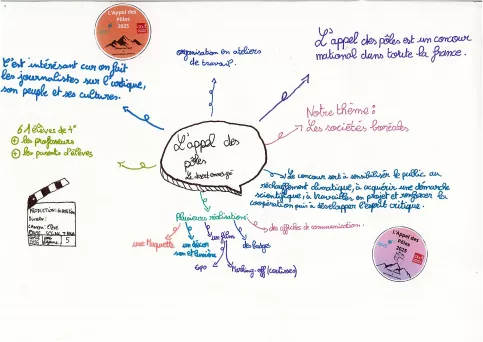 L'Appel des Pôles 2025
C'est intéressant car on fait
les journalistes sur l'arctique,
son peuple et ses cultures.
organisation en ateliers
de travail.
L'appel des pôles est un concour
national dans toute la france.
Notre thème :
Les sociétés boréales
61 élèves de 4e
+ les professeurs
+ les parents d'élèves
L'appel des
pôles
Le concour sert à sensibiliser le public au
réchauffement climatique, à acquérir une démarche
scientifique, à travailler en projet et renforcer la
coopération mais à développer l'esprit critique.
Plusieurs réalisation :
une Maquette
un décor
son et lumière
un film
des badges
des affiches de communication.
Making-off (coulisses)
5
L'Appel des
Pôles
2025